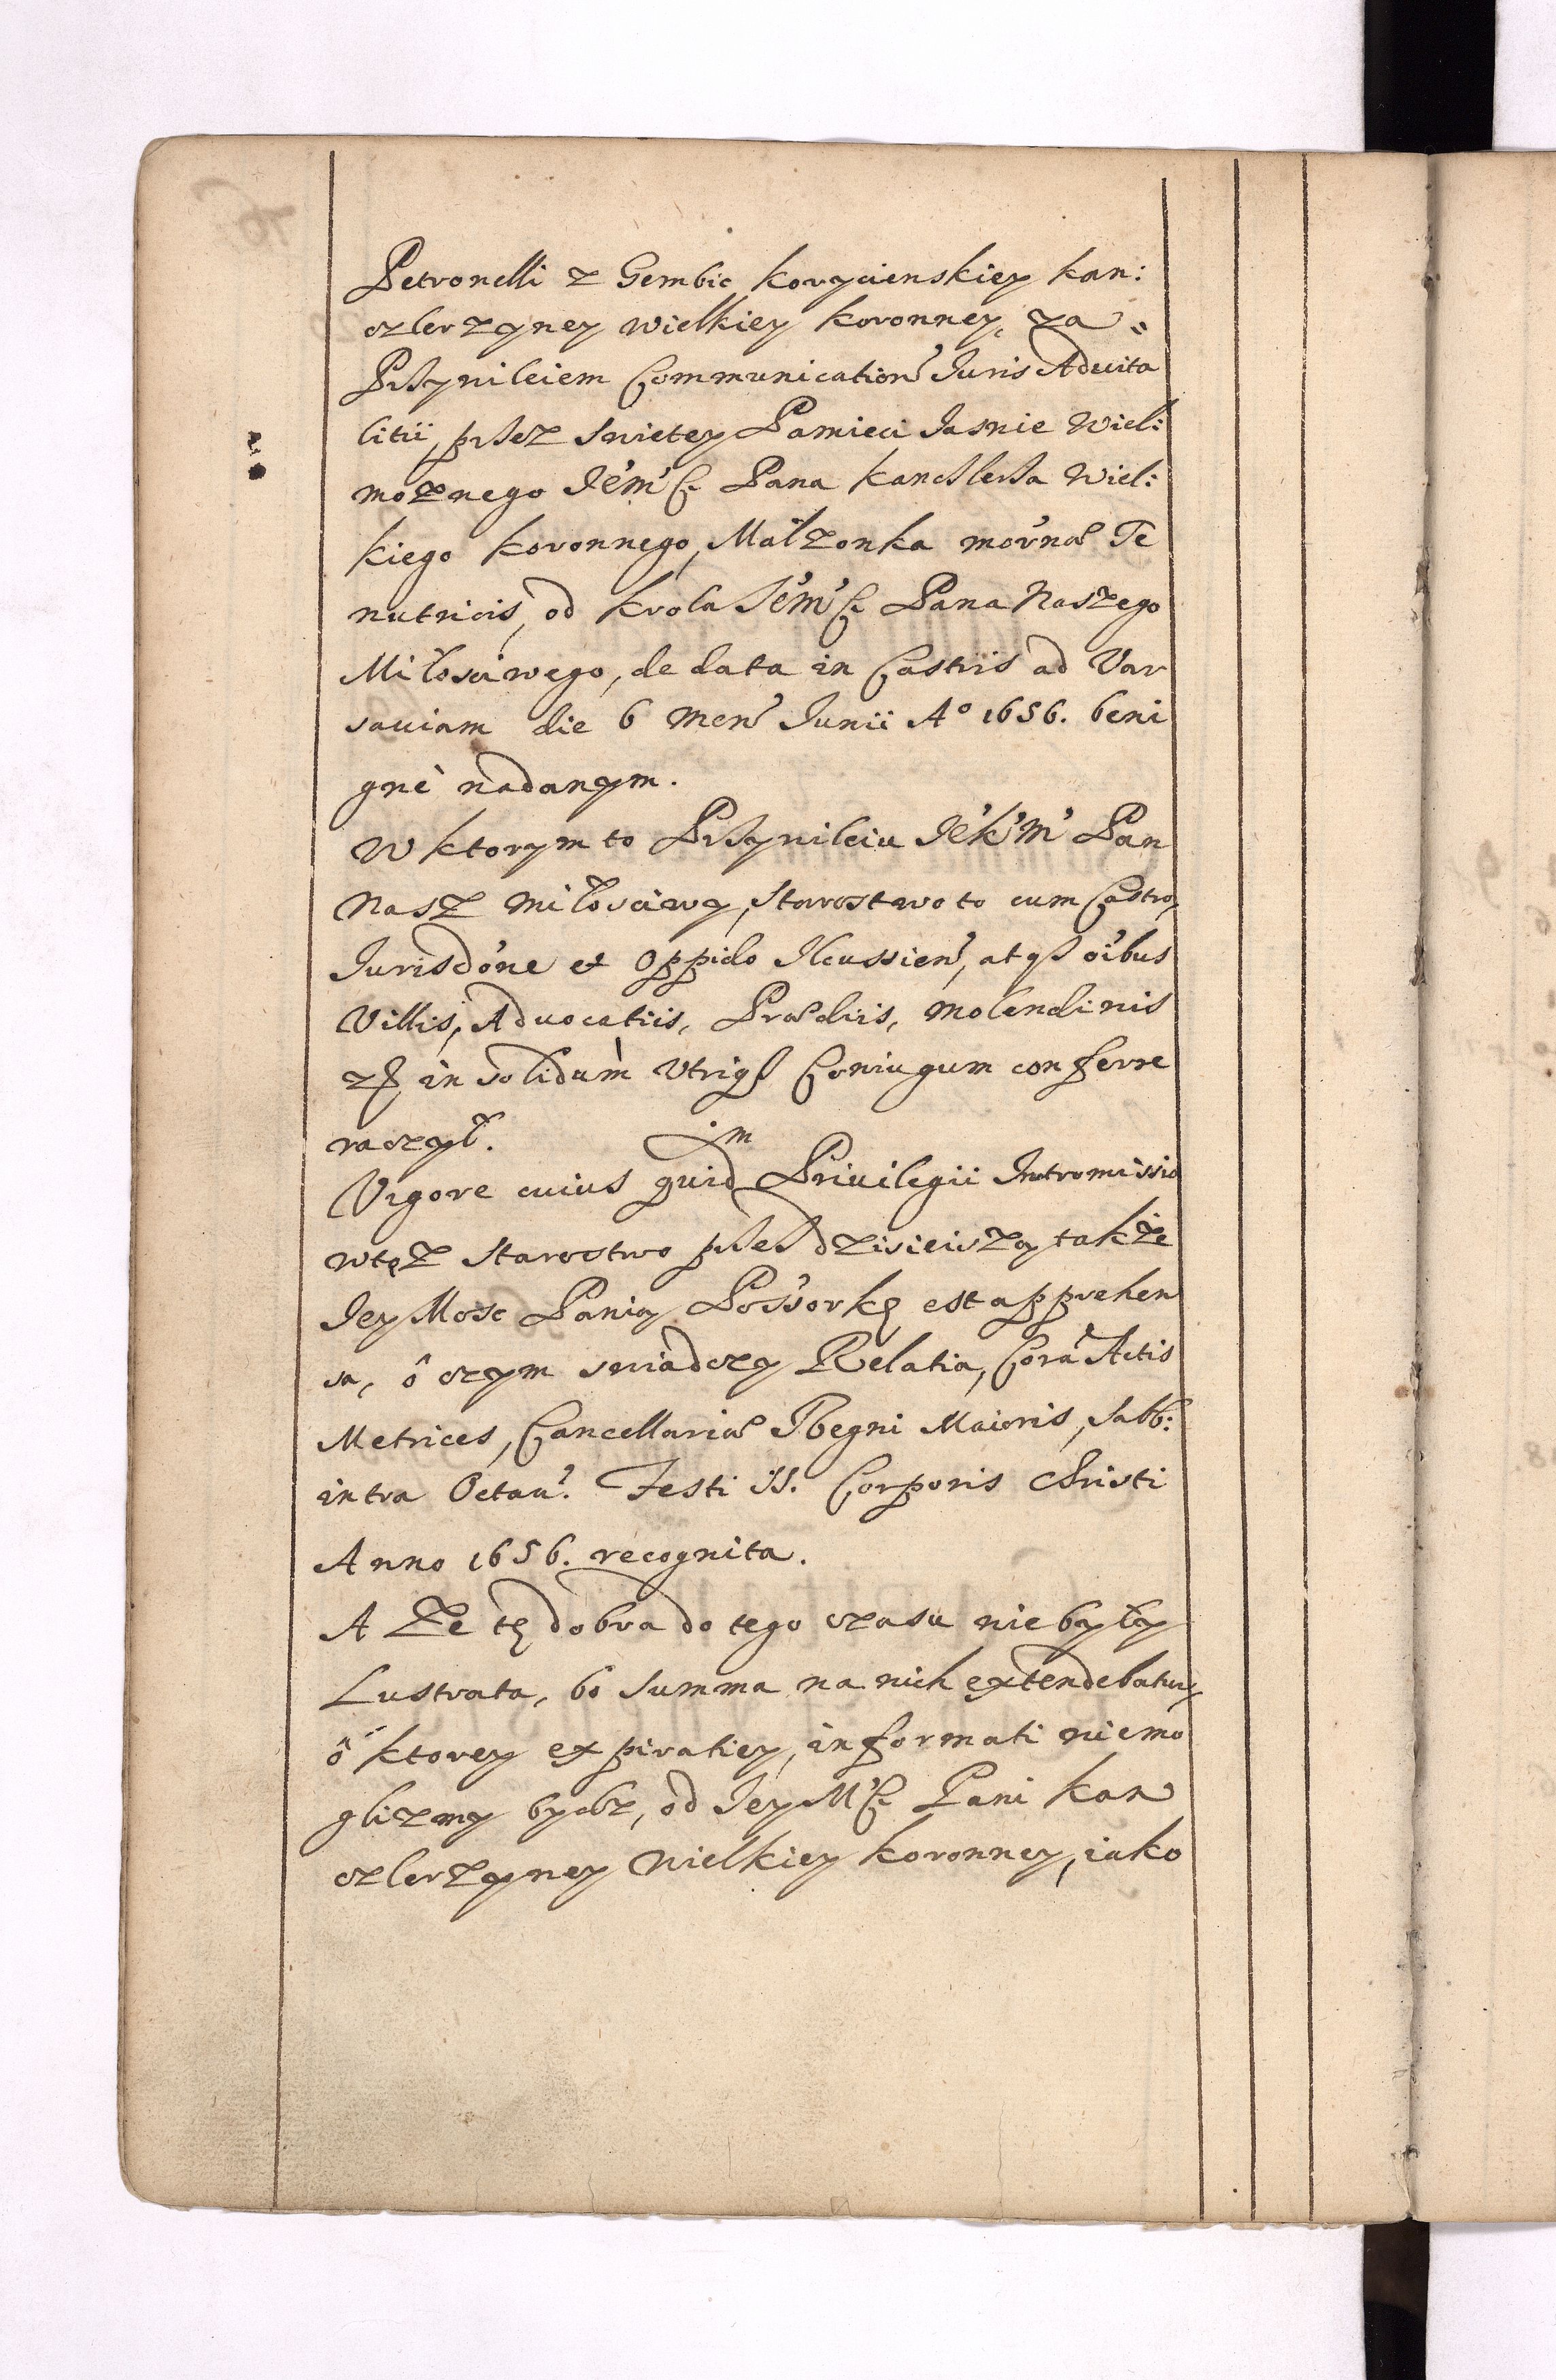 Petronelli z Gembic Korycienskiey Kan:
czlerzyney wielkiey koronney, za
Przywileiem Communication Juris Aduita
litii, przez swietey Pamieci Jasnie Wiel:
możnego Je'm'ści Pana Kanczlerza Wiel:
kiego koronnego, Małzonka mor'næ Te
nutricis, od Krola Je'm'ści Pana Naszego
Miłosciwego, de data in Castris ad Var
sauiam die 6 Men' Junii A° 1656. beni
gnè nadanym.
W ktorym to Przywileiu Je'k'm' Pan
Nasz miłosciwy, Starostwo to cum Castro,
Jurisdo'ne et Oppido Ilcussien', atqz oi'bus
Villis, Aduocatiis, Prædiis, Molendinis
z in solidum Vtriqz Coniugum conferre
raczył.
Vigore cuius quid.m Priuilegii Intromissio
wtęż Starostwo przez dzisieiszą także
Jey Mosc Panią Pos'sorkę est apprehen
sa, ô czym swiadczy Relatia, Corã Actis
Metrices, Cancellariæ Regni Maioris, Sabb:
intra Octau'. Festi SS. Corporis Christi
Anno 1656. recognita.
A że tę dobra do tego czasu niebyły
Lustrata, bo Summa na nich extendebatur,
ô ktorey expiratiey, informati niemo
gliszmy bydz, od Jey M'ści Pani Kan
czlerzyney Wielkiey koronney, iako